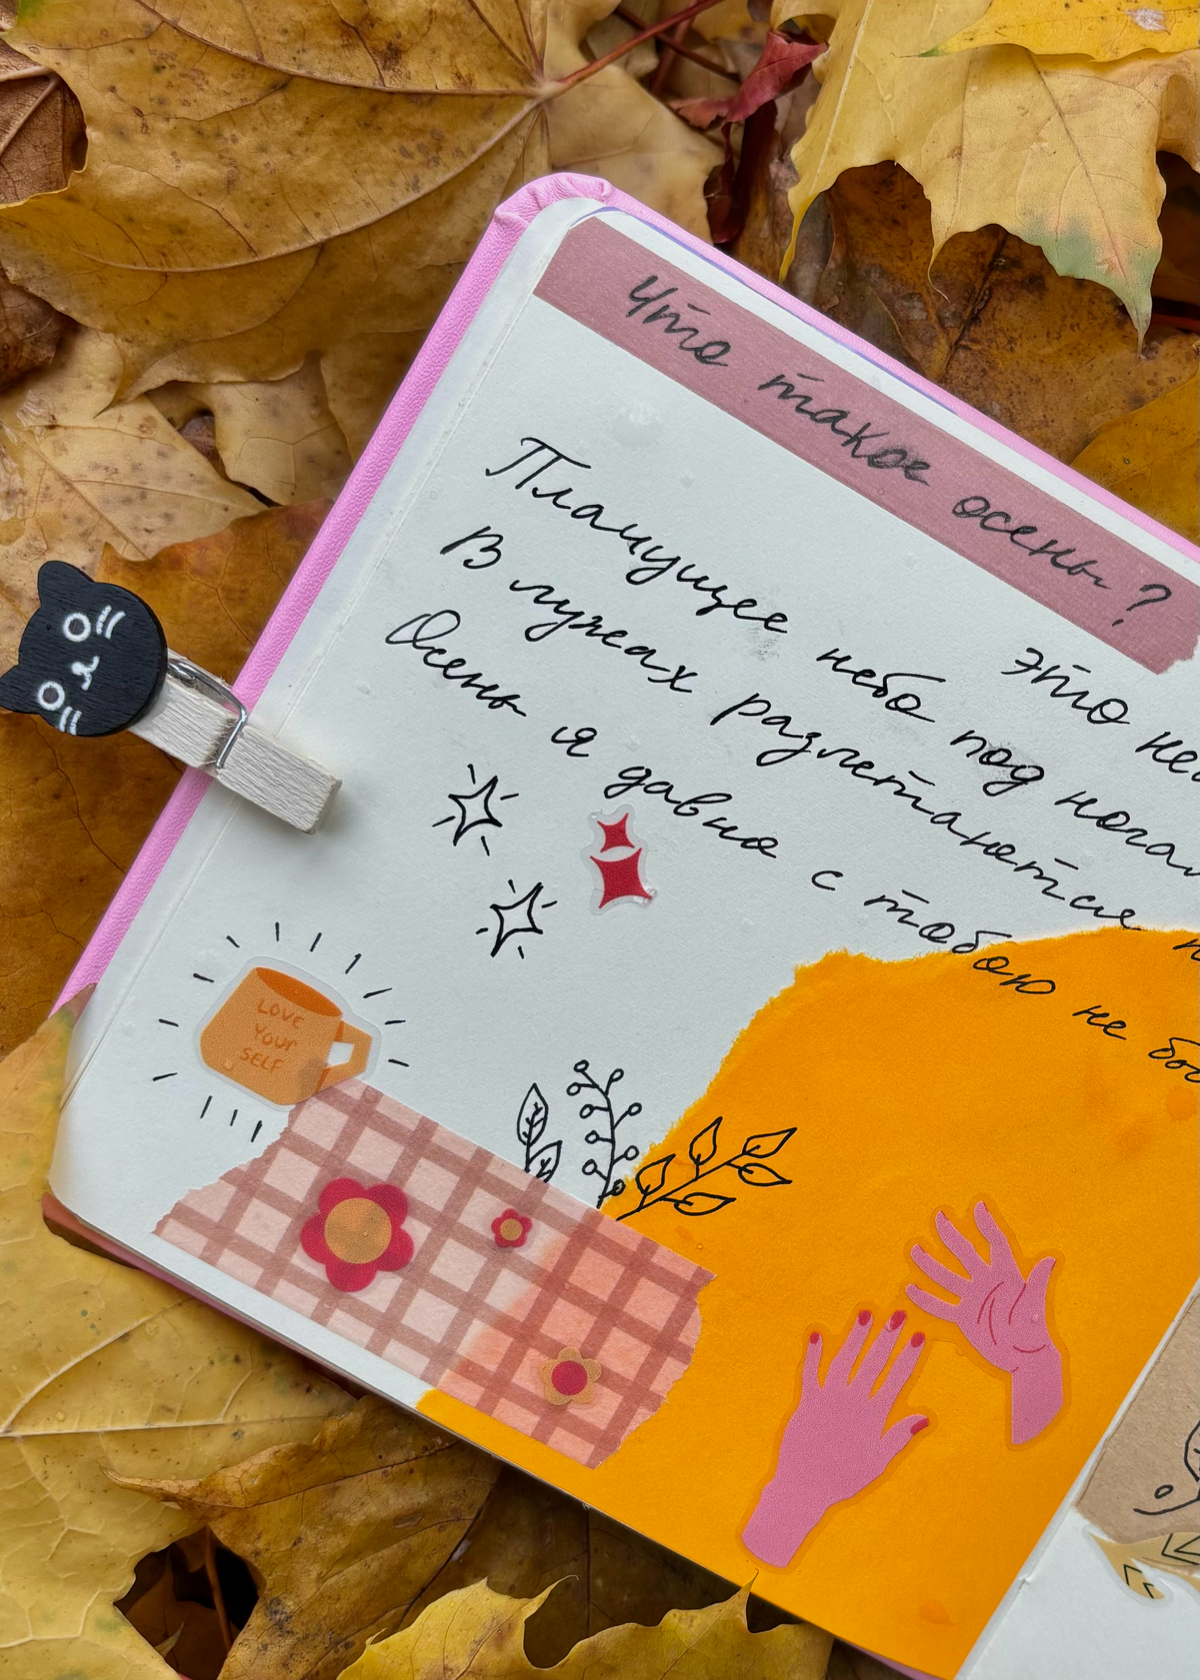 Что такое осень?
это не
Плачущее небо под ногам
В лужах разлетаются п
Осень я давно с тобою не
LOVE
YOUR
SELF